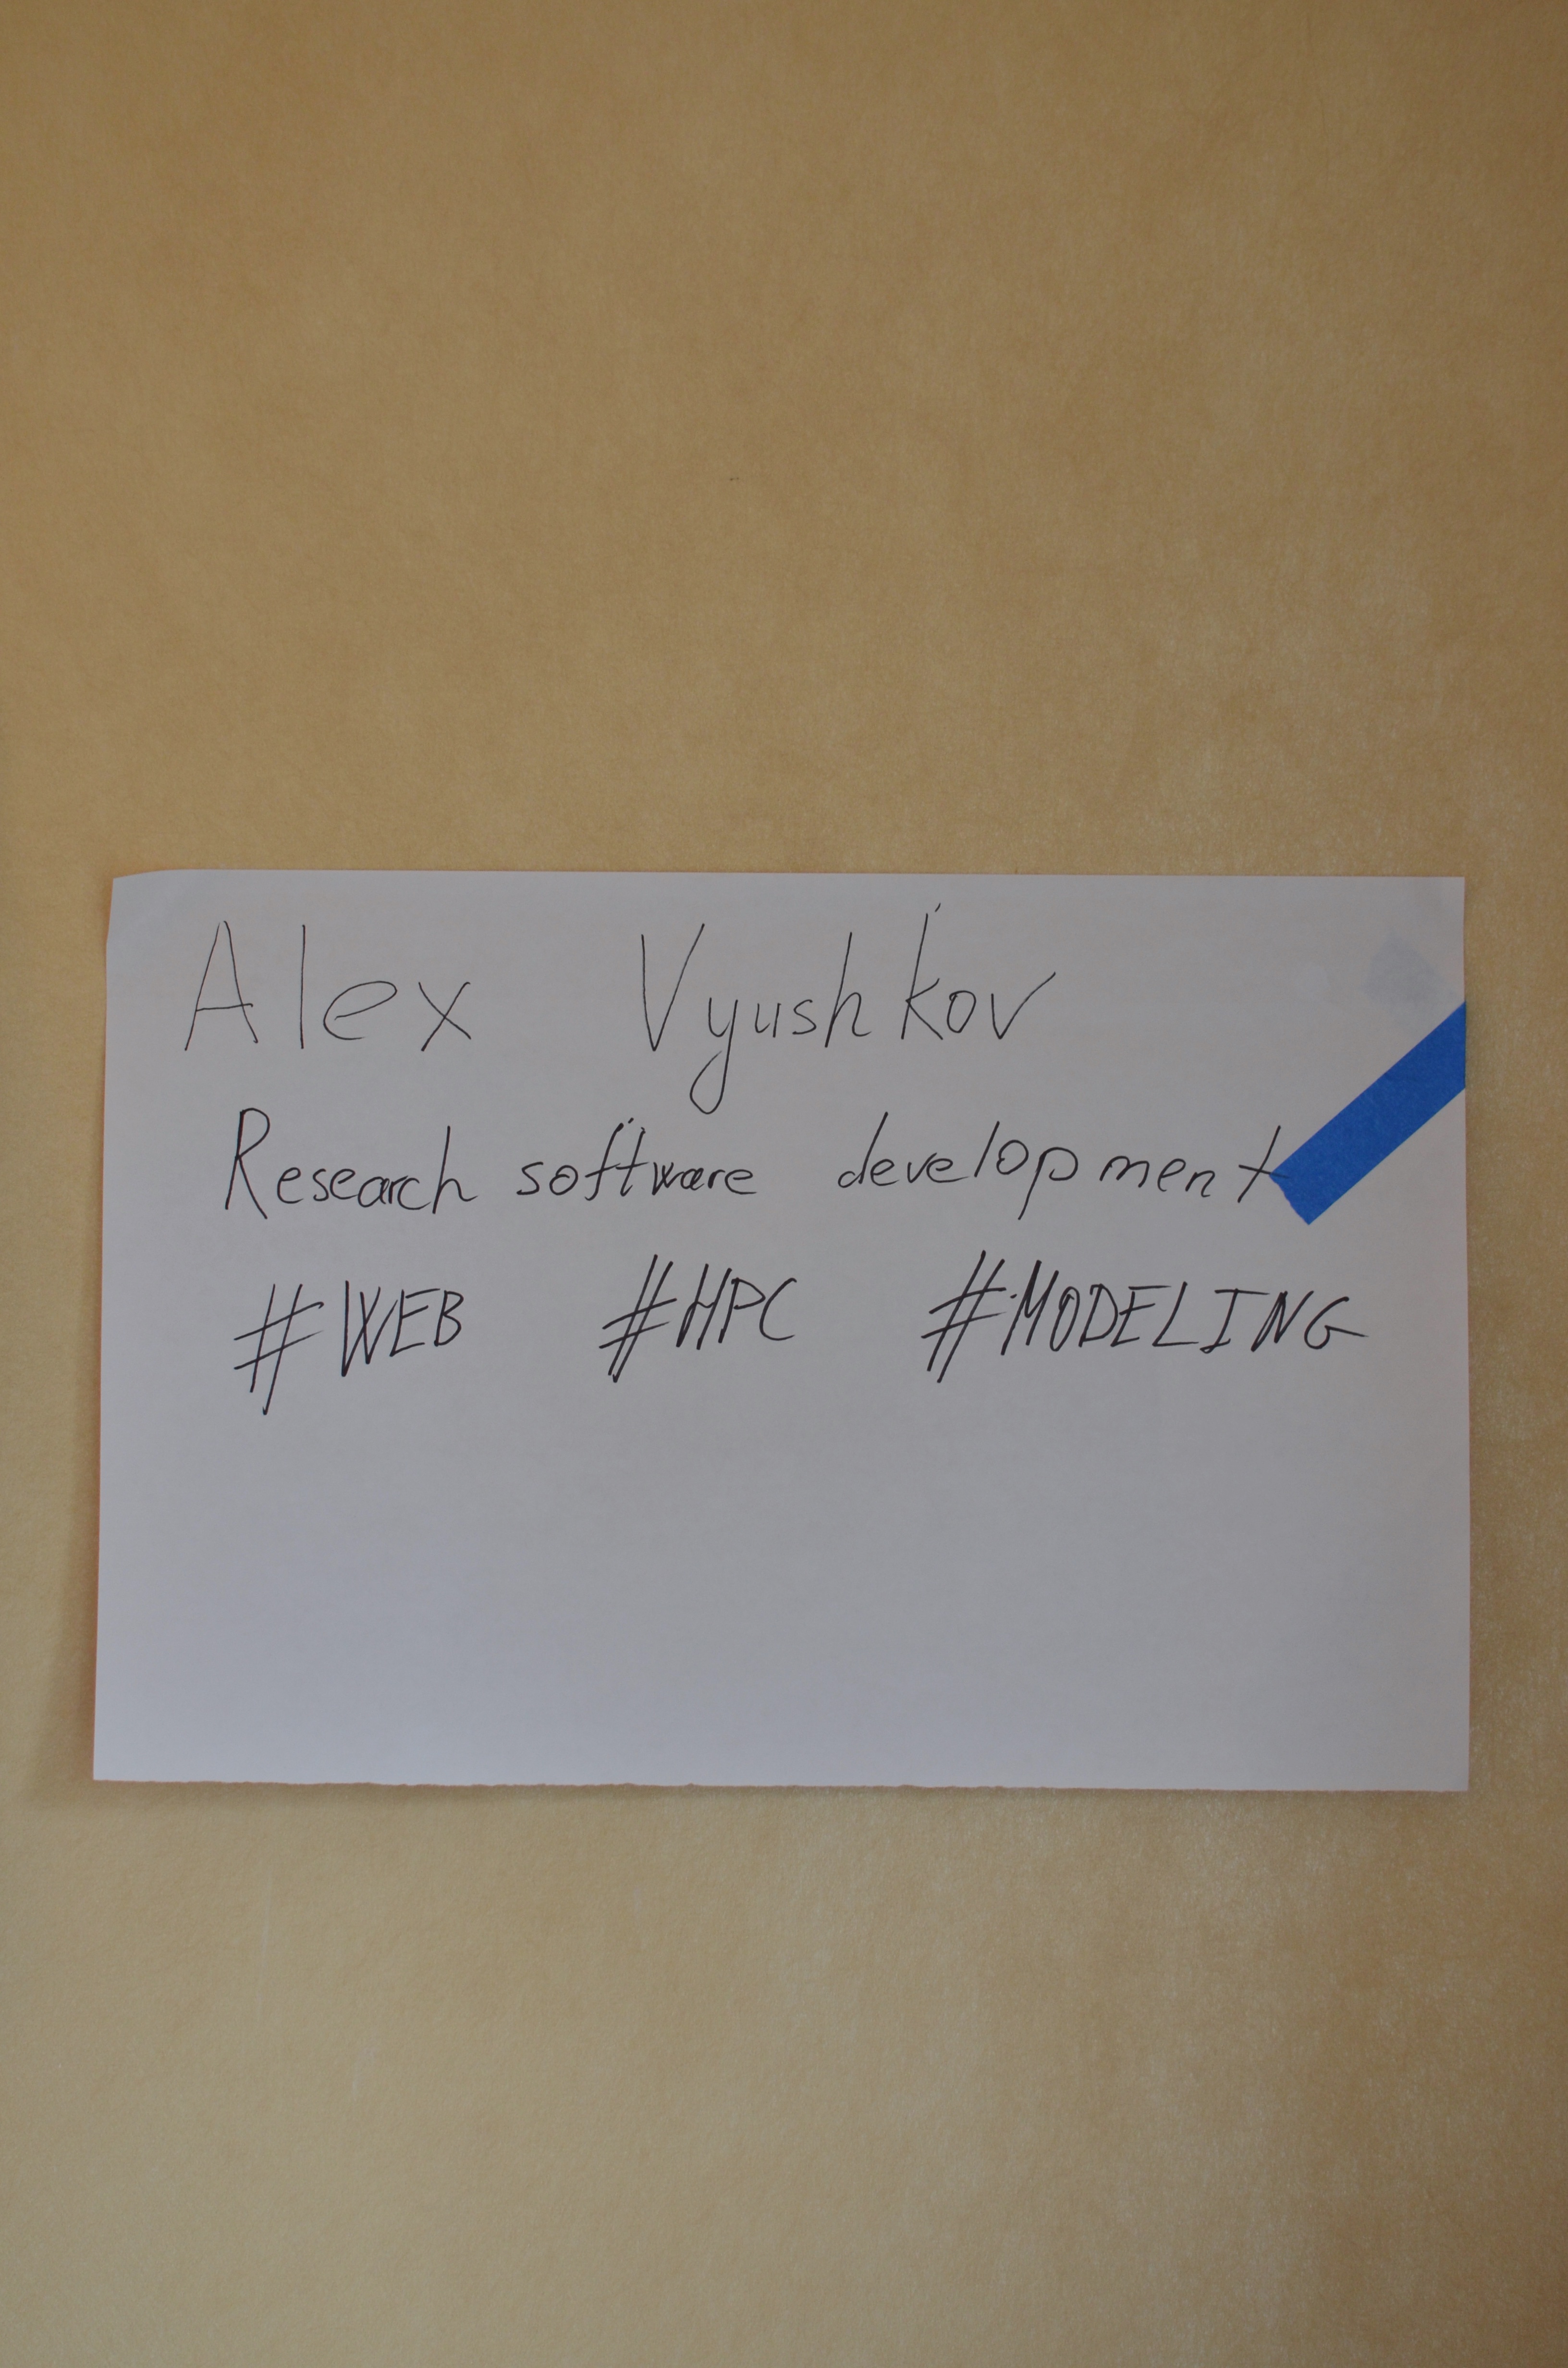 Alex Vyushkov
Research software development
#WEB #HPC #MODELING